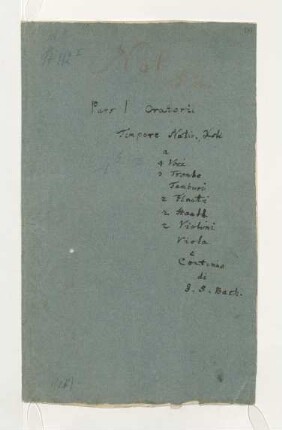 No 1
Pars I Oratorii
Tempore Nativ. Xsti
a
4 Voci
3 Trombe
Tamburi
2 Flauti
2 Hautb
2 Violini
Viola
e
Continuo
di
J. S. Bach.